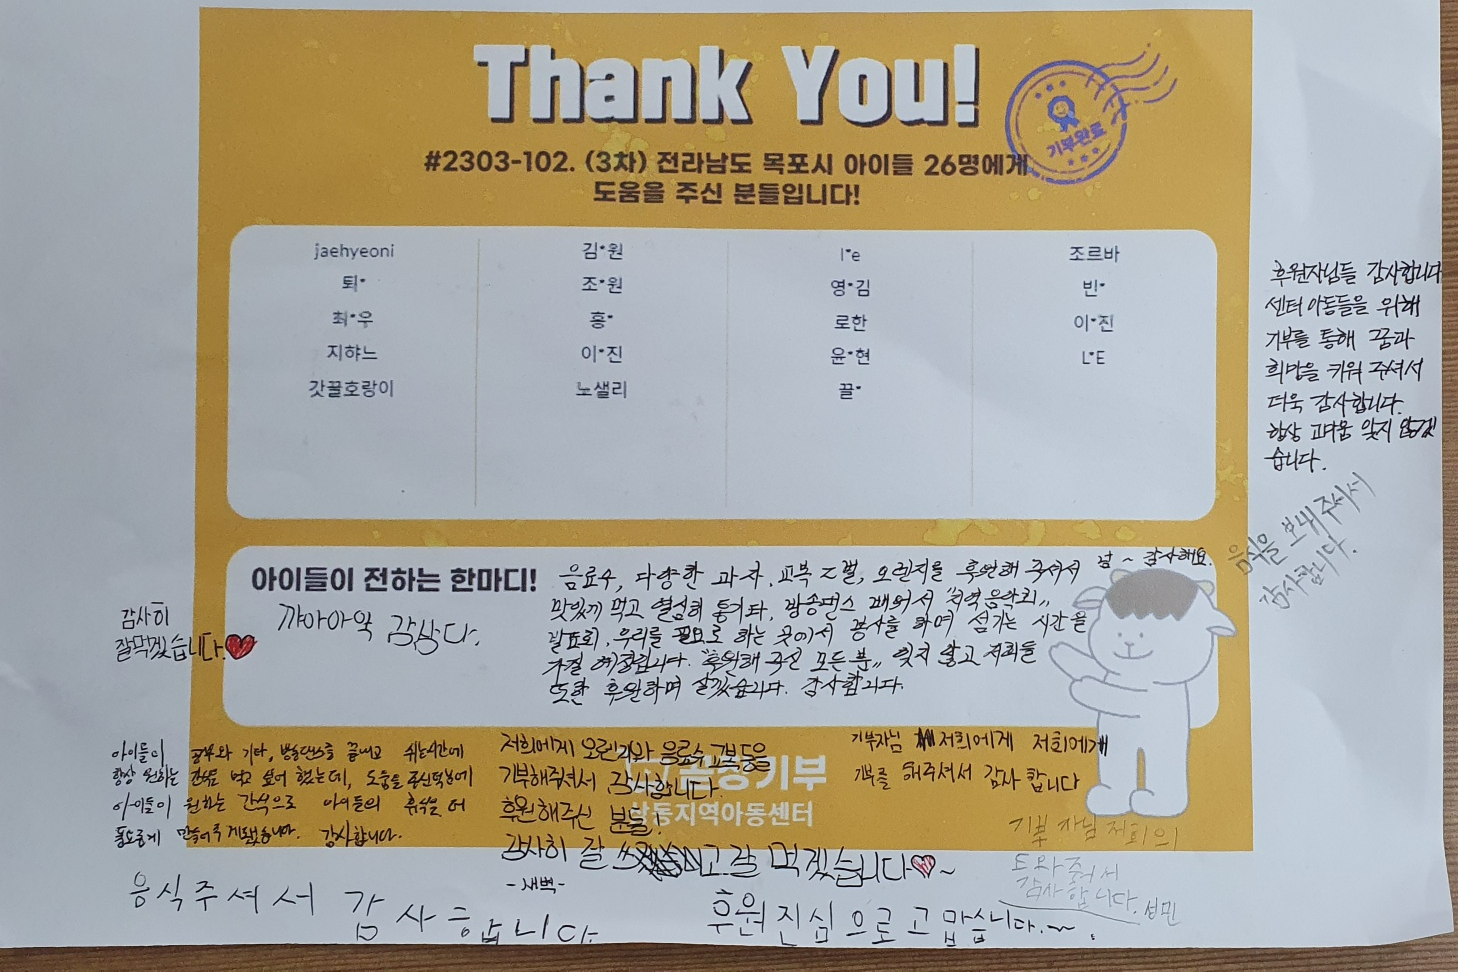 Thank You!
기부완료
#2303-102. (3차) 전라남도 목포시 아이들 26명에게
도움을 주신 분들입니다!
jaehyeoni 김*원 l*e 조르바
퇴* 조*원 영*김 빈*
최*우 홍* 로한 이*진
지햐느 이*진 윤*현 L*E
갓끌호랑이 노샐리 끌*
후원자님들 감사합니다
센터 아동들을 위해
기부를 통해 꿈과
희망을 키워 주셔서
더욱 감사합니다.
항상 고마움 잊지 않겠
습니다.
음식을 보내주셔서
감사합니다.
아이들이 전하는 한마디!
꺄아아악 감삼다.
음료수, 다양한 과자, 교복 오렌지를 후원해 주셔서
맛있게 먹고 열심히 통기타, 방송댄스 배워서 "지역음악회"
발표회, 우리를 필요로 하는 곳에서 봉사를 하며 섬기는 시간을
가질 예정입니다. "후원해 주신 모든 분" 잊지 않고 저희들
또한 후원하며 살겠습니다. 감사합니다.
넘 ~ 감사해요.
감사히
잘먹겠습니다.
아이들이 공부와 기타, 방송댄스를 끝내고 쉬는시간에
항상 원하는 간식을 먹고 싶어 했는데, 도움을 주신덕분에
아이들이 원하는 간식으로 아이들의 휴식을 더
풍요롭게 만들어주게됐습니다. 감사합니다.
저희에게 오렌지와 음료수 교복등을
기부해주셔서 감사합니다.
후원해주신 분들.
감사히 잘 고 잘 먹겠습니다~
-새벽-
기부자님 저희에게 저희에게
기부를 해주셔서 감사 합니다
곰상기부
상동지역아동센터
기부 자님 저희의
도와줘서
감사합니다. 성민
음식주셔서 감사합니다
후원 진심으로 고맙습니다.~